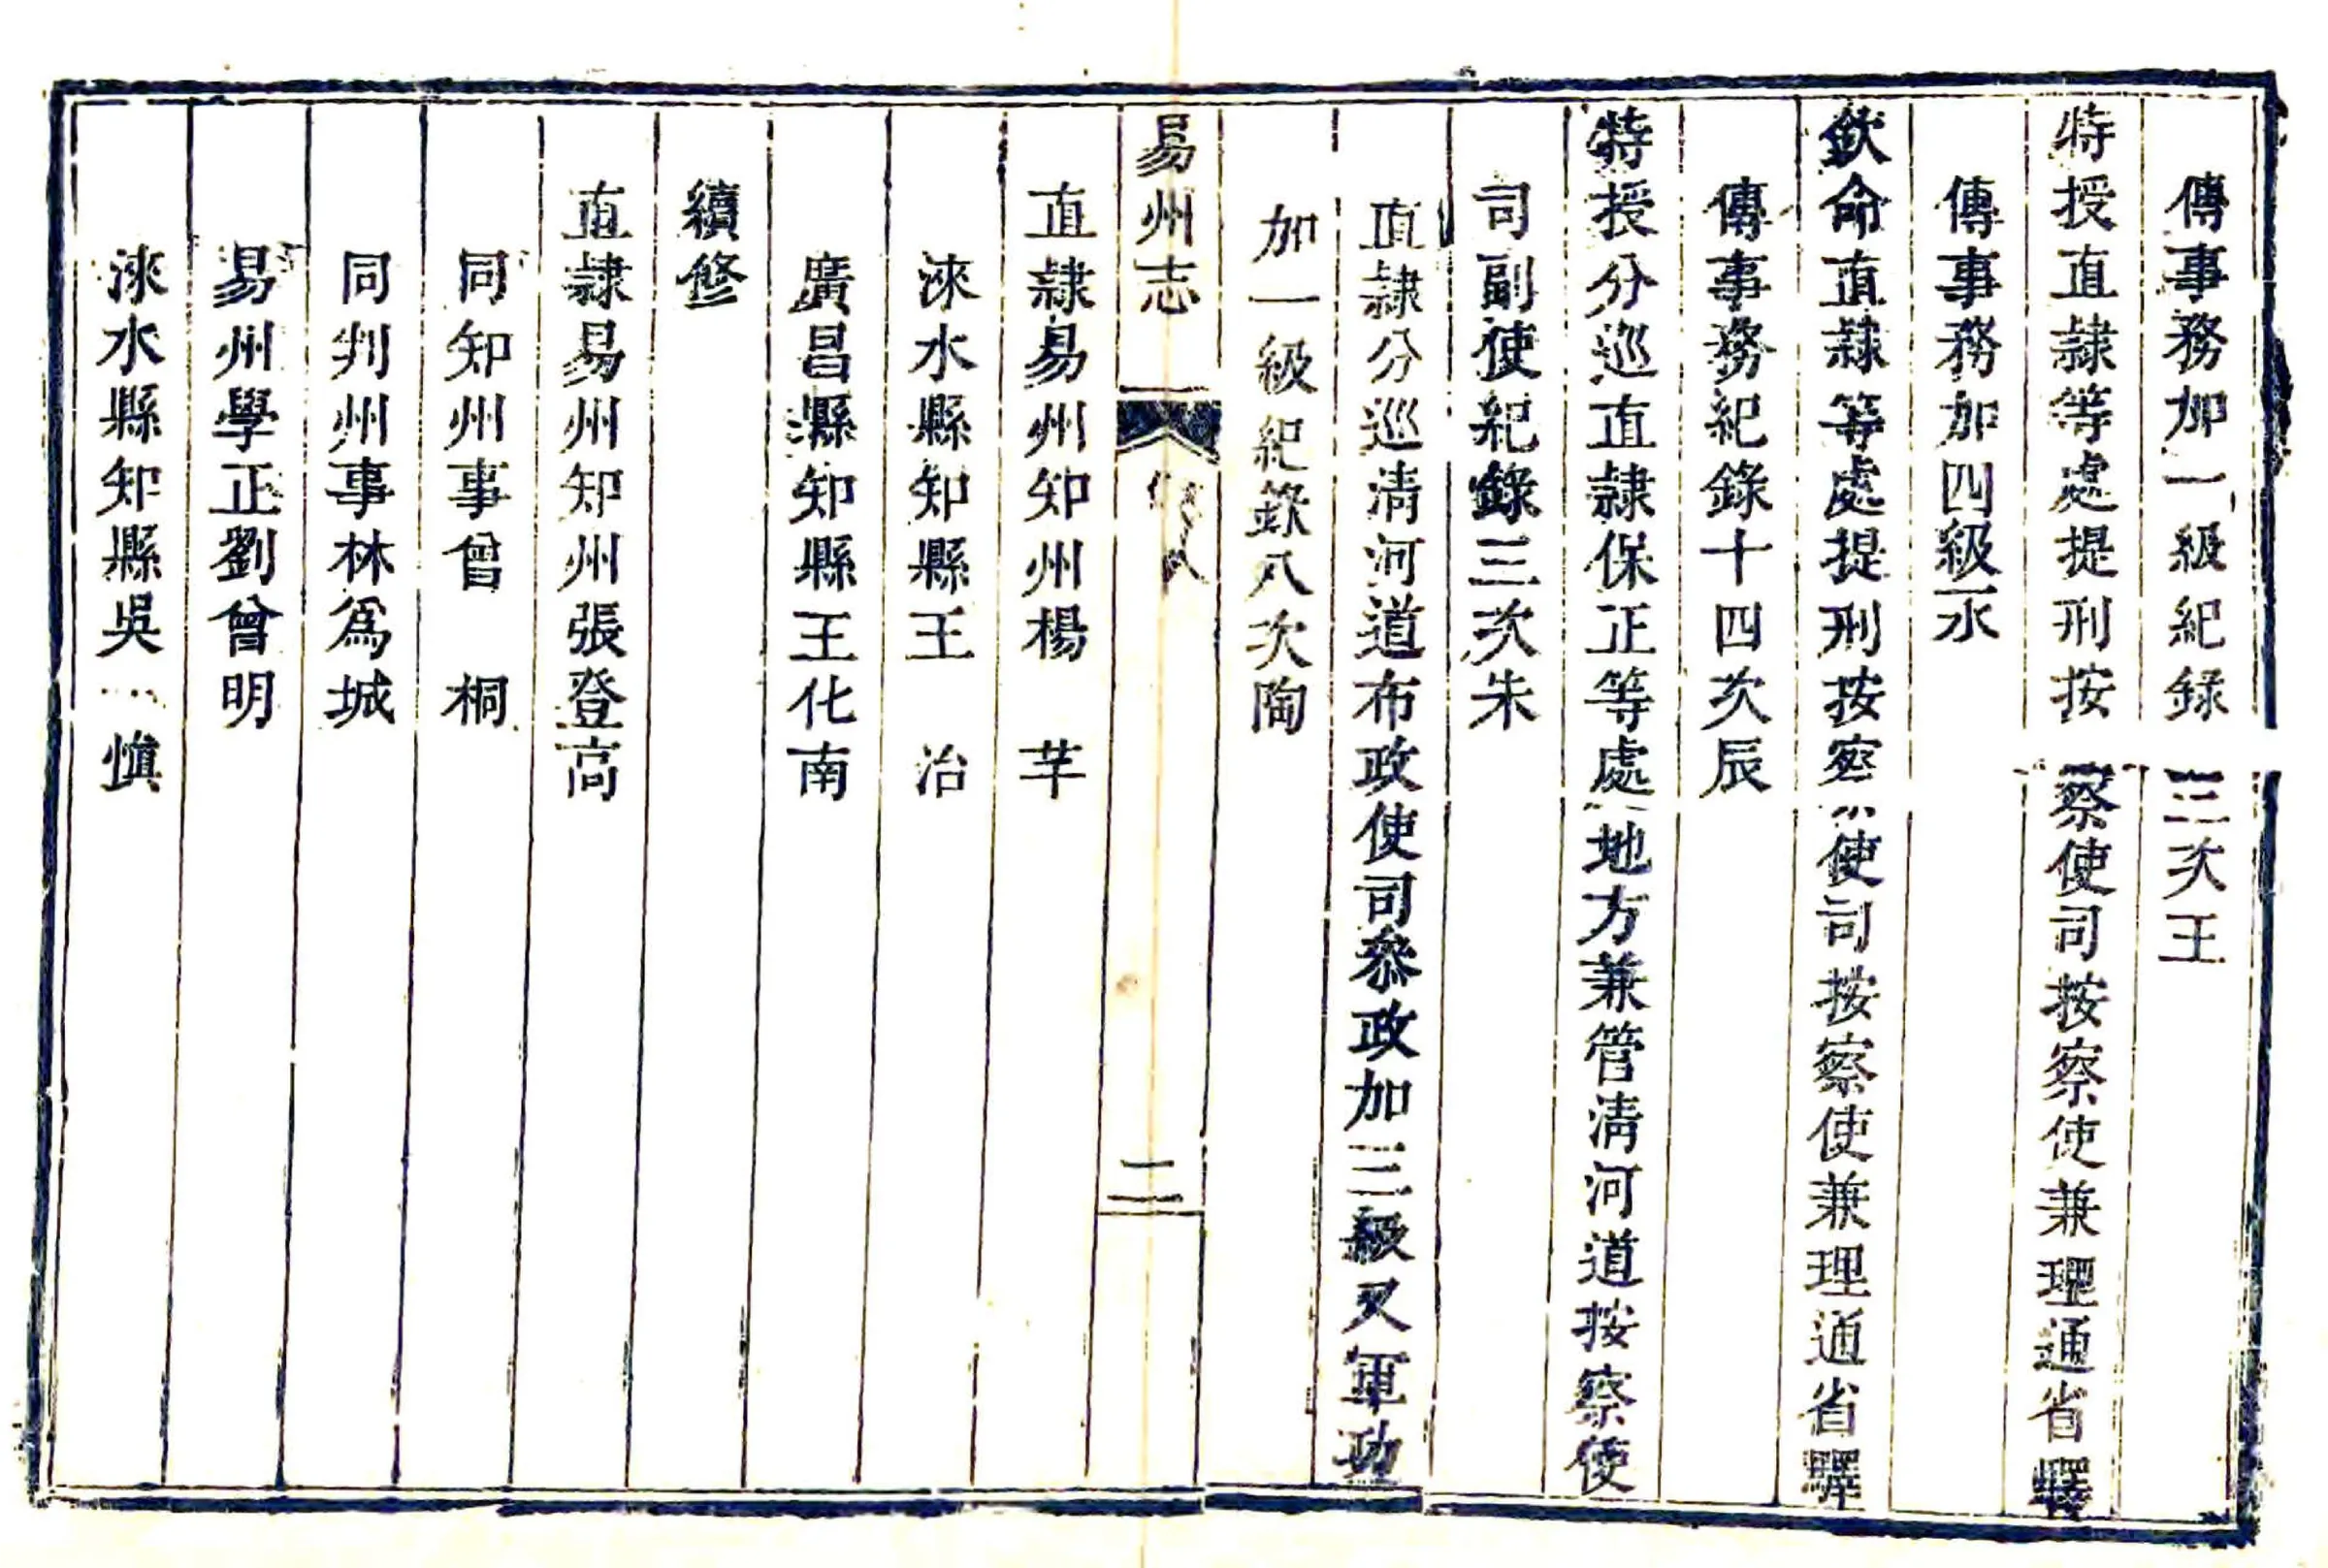 傳事務加一級紀録三次王
特授直隸等處提刑按察使司按察使兼理通省驛
傳事務加四級永
欽命直隸等處提刑按察使司按察使兼理通省驛
傳事務紀錄十四次辰
特授分巡直隸保正等處地方兼管淸河道按察使
司副使紀錄三次朱
直隸分巡淸河道布政使司叅政加三級又軍功
加一級紀錄八次陶
易州志
二
直隸易州知州楊芊
淶水縣知縣王治
廣昌縣知縣王化南
續修
直隸易州知州張登高
同知州事曾桐
同判州事林爲城
易州學正劉曾明
淶水縣知縣吳愼